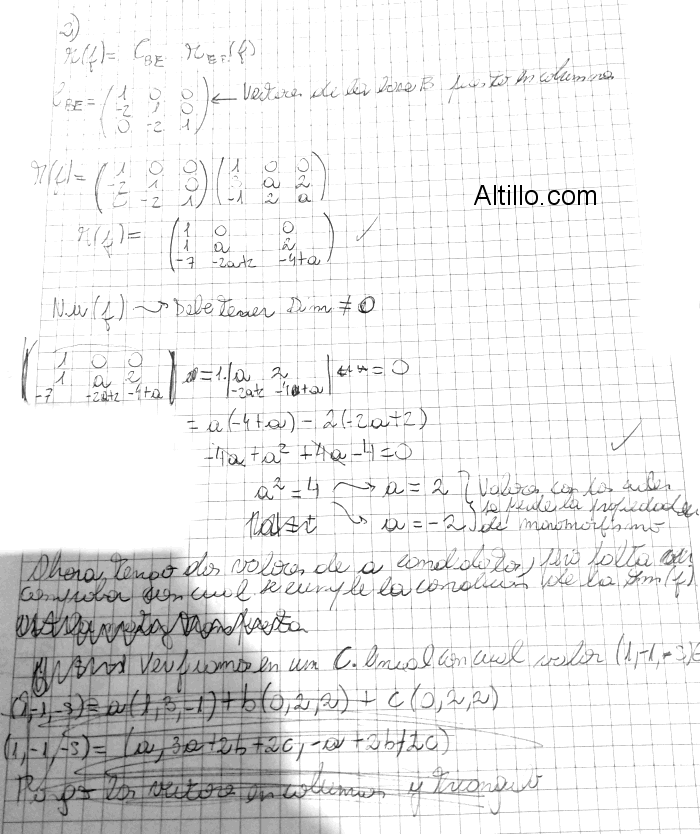 2)
M(f) = C_BE M_EE(f)
C_BE = ( 1 0 0 ; -2 1 0 ; 0 -2 1 ) ← Vectores de la base B puesto en columna
M(f) = ( 1 0 0 ; -2 1 0 ; 0 -2 1 ) ( 1 0 0 ; 3 a 2 ; -1 2 a )
Altillo.com
M(f) = ( 1 0 0 ; 1 a 2 ; -7 -2a+2 -4+a ) ✓
Nu(f) → Debe tener Dim ≠ 0
| 1 0 0 ; 1 a 2 ; -7 -2a+2 -4+a | = 1. | a 2 ; -2a+2 -4+a | = 0
= a(-4+a) - 2(-2a+2)
-4a + a² + 4a - 4 = 0 ✓
a² = 4 → a = 2 } Valores con los cuales
→ a = -2 } se pierde la propiedad de monomorfismo
Ahora, tengo dos valores de a candidatos, solo falta
comprobar con cual se cumple la condición de la Im(f)
Verifiquemos en un C. lineal con cual valor (1,-1,-3)∈
(1,-1,-3) = a(1,3,-1) + b(0,2,2) + c(0,2,2)
(1,-1,-3) = (a, 3a+2b+2c, -a+2b+2c)
los vectores en columnas y triangulo